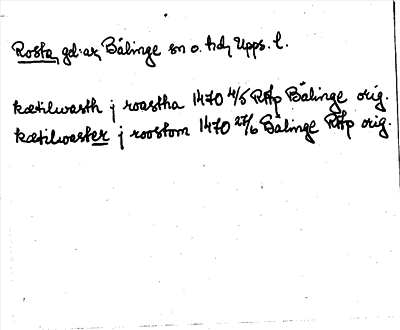 Rosta, gd:ar, Bälinge sn o. hd, Upps. l.
kætilwasth j roastha 1470 4/5 RAp Bälinge orig.
kætilwaster j roostom 1470 27/6 Bälinge RAp orig.